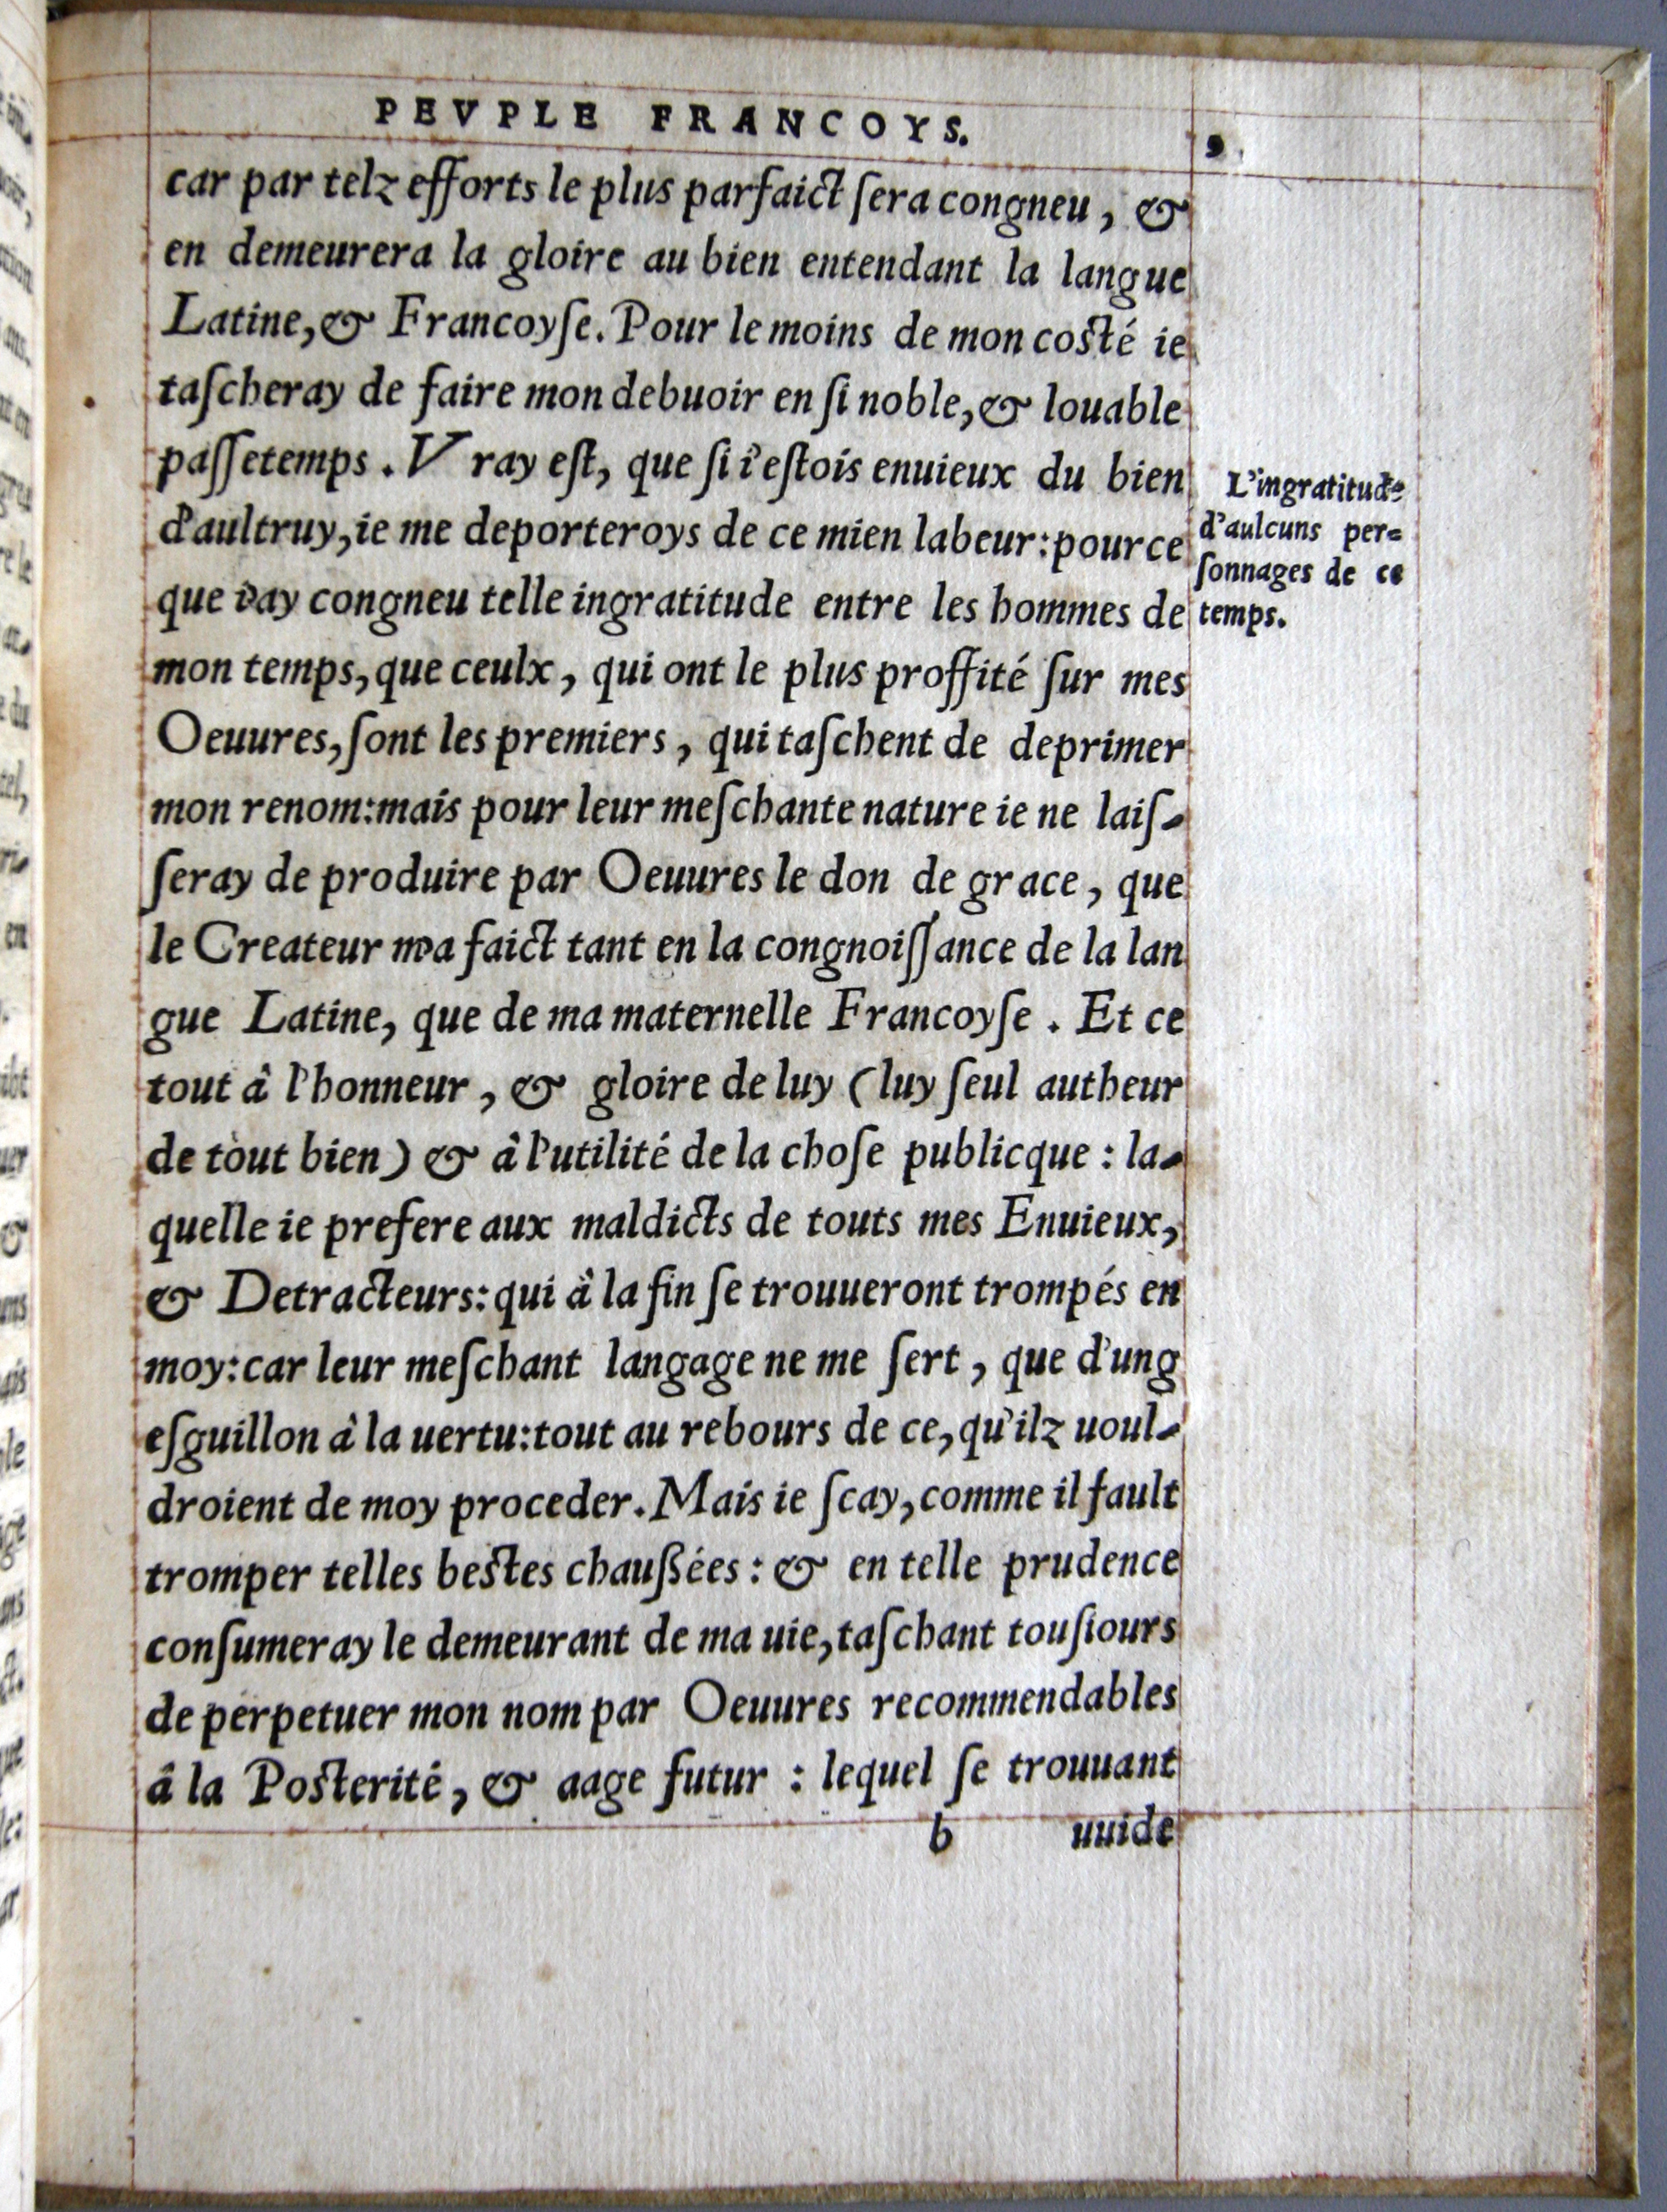 PEVPLE FRANCOYS.
9
car par telz efforts le plus parfaict ſera congneu, &
en demeurera la gloire au bien entendant la langue
Latine, & Francoyſe. Pour le moins de mon coſté ie
taſcheray de faire mon debuoir en ſi noble, & louable
paſſetemps. Vray eſt, que ſi i'eſtois enuieux du bien
d'aultruy, ie me deporteroys de ce mien labeur: pource
que i'ay congneu telle ingratitude entre les hommes de
mon temps, que ceulx, qui ont le plus proffité ſur mes
Oeuures, ſont les premiers, qui taſchent de deprimer
mon renom: mais pour leur meſchante nature ie ne laiſ-
ſeray de produire par Oeuures le don de grace, que
le Createur m'a faict tant en la congnoiſſance de la lan
gue Latine, que de ma maternelle Francoyſe. Et ce
tout â l'honneur, & gloire de luy (luy ſeul autheur
de tout bien) & â l'utilité de la choſe publicque: la-
quelle ie prefere aux maldicts de touts mes Enuieux,
& Detracteurs: qui â la fin ſe trouueront trompés en
moy: car leur meſchant langage ne me ſert, que d'ung
eſguillon â la uertu: tout au rebours de ce, qu'ilz uoul-
droient de moy proceder. Mais ie ſcay, comme il fault
tromper telles beſtes chauſſées: & en telle prudence
conſumeray le demeurant de ma uie, taſchant touſiours
de perpetuer mon nom par Oeuures recommendables
â la Poſterité, & aage futur: lequel ſe trouuant
b uuide
L'ingratitude
d'aulcuns per=
ſonnages de ce
temps.